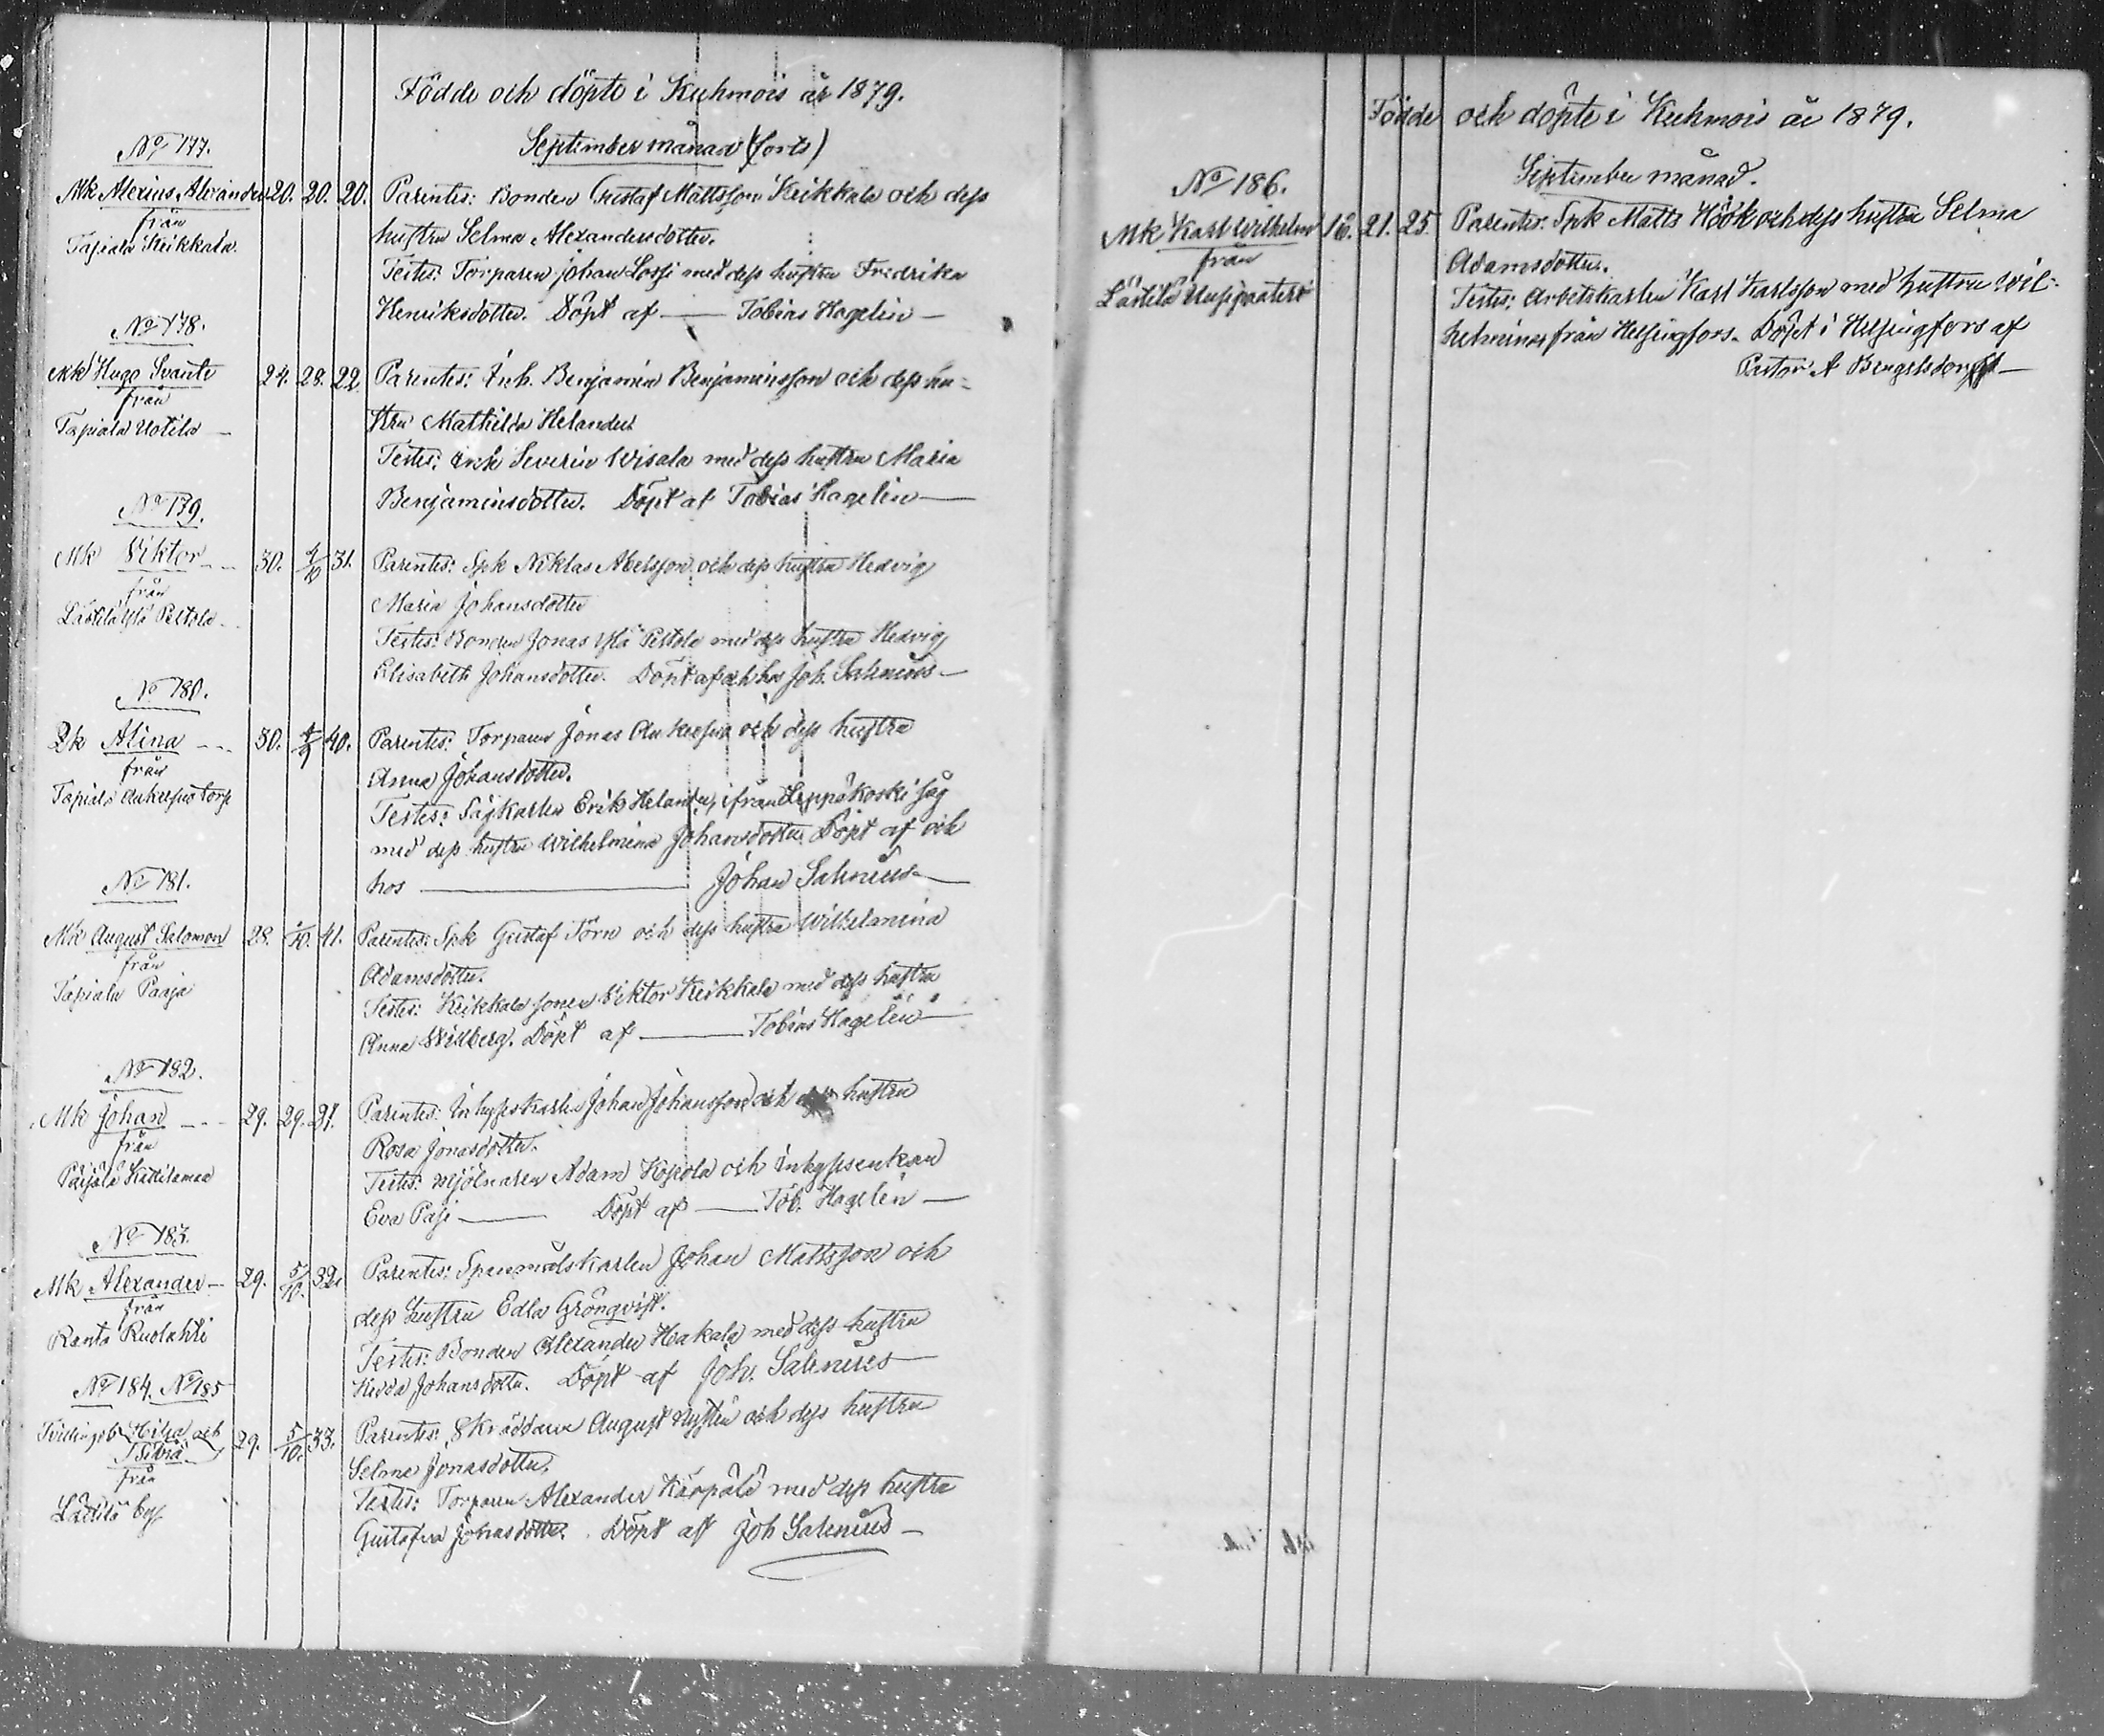 Födde och döpte i Kuhmois år 1879.
September månad (forts)
No 177.
Mk Alexius Alexander 20. 20. 20. Parentes: Bonden Gustaf Mattsson Keikkala och dess
från
Tapiala Keikkala.
hustru Selma Alexandersdotter.
Testes: Torparen Johan Lossi med dess hustru Fredrika
Henriksdotter. Döpt af — Tobias Hagelin —
No 178.
Mk Hugo Svante 24. 28. 22. Parentes: Inh. Benjamin Benjaminsson och dess hu-
från
Tapiala Uotila —
stru Mathilda Helander
Testes: Inh Severin Wisala med dess hustru Maria
Benjaminsdotter. Döpt af Tobias Hagelin —
No 179.
Mk Viktor - - 30. 4/10 31. Parentes: Spk Niklas Abelsson och dess hustru Hedvig
från
Lästilä Ylä Peltola -
Maria Johansdotter
Testes: Bonden Jonas Ylä Peltola med dess hustru Hedvig
Elisabeth Johansdotter. Döpt af och hos Joh. Salenius —
No 180.
Qk Alina - - 30. 40. Parentes: Torparen Jonas och dess hustru
från
Tapiala torp
Anna Johansdotter.
Testes: Sågkarlen Erik Helander, ifrån Leppäkoski såg
med dess hustru Wilhelmina Johansdotter. Döpt af och
hos — Johan Salenius —
No 181.
Mk August Salomon 28. /10. 41. Parentes: Spk Gustaf Törn och dess hustru Wilhelmina
från
Tapiala Paaja
Adamsdotter.
Testes: Keikkala sonen Viktor Keikkala med dess hustru
Anna Willberg. Döpt af — Tobias Hagelin —
No 182.
Mk Johan - - - 29. 29. 31. Parentes: Inhyseskarlen Johan Johansson och dess hustru
från
Päijälä Kattilamaa
Rosa Jonasdotter.
Testes: Mjölnaren Adam Kopola och inhysenkan
Eva Pasi — Döpt af — Tob. Hagelin —
No 183.
Mk Alexander - 29. 5/10. 32. Parentes: Spanmålskarlen Johan Mattsson och
från
Ranta Ruolahti
dess hustru Edla Grönqvist.
Testes: Bonden Alexander Hakala med dess hustru
Hedda Johansdotter. Döpt af Joh. Salenius —
No 184. No 185
Tvillingb. Hilja och 29. 5/10. 33. Parentes: Skräddaren August Nysten och dess hustru
från
Lästilä by
Selma Jonasdotter.
Testes: Torparen Alexander Kärpälä med dess hustru
Gustafva Johansdotter. Döpt af Joh Salenius —
Födde och döpte i Kuhmois år 1879.
September månad.
No 186.
Mk Karl Wilhelm 16. 21. 25. Parentes: Spk Matts Höök och dess hustru Selma
från
Lästilä Uusipaatero
Adamsdotter.
Testes: Arbetskarlen Karl Karlsson med hustru Wil-
helmina från Helsingfors. Döpt i Helsingfors af
Pastor A Bengelsdorff —